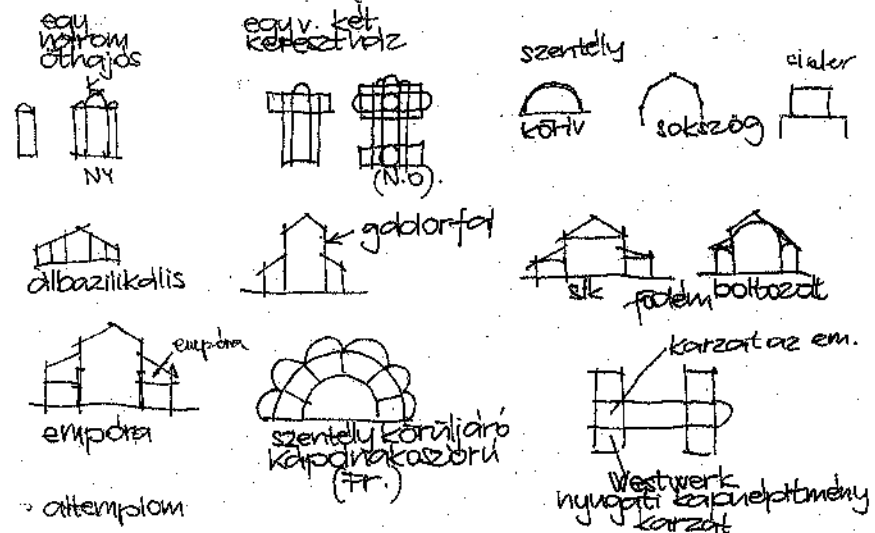 egy
három
öthajós
K
NY
egy v. két
keresztház
(N.O).
szentély
körív
sokszög
álbazilikális
gádorfal
sík
födém
boltozat
empóra
empóra
szentély körüljáró
kápolnakoszorú
(Fr.)
karzat az em.
Westwerk
nyugati kapuépítmény
karzat
altemplom